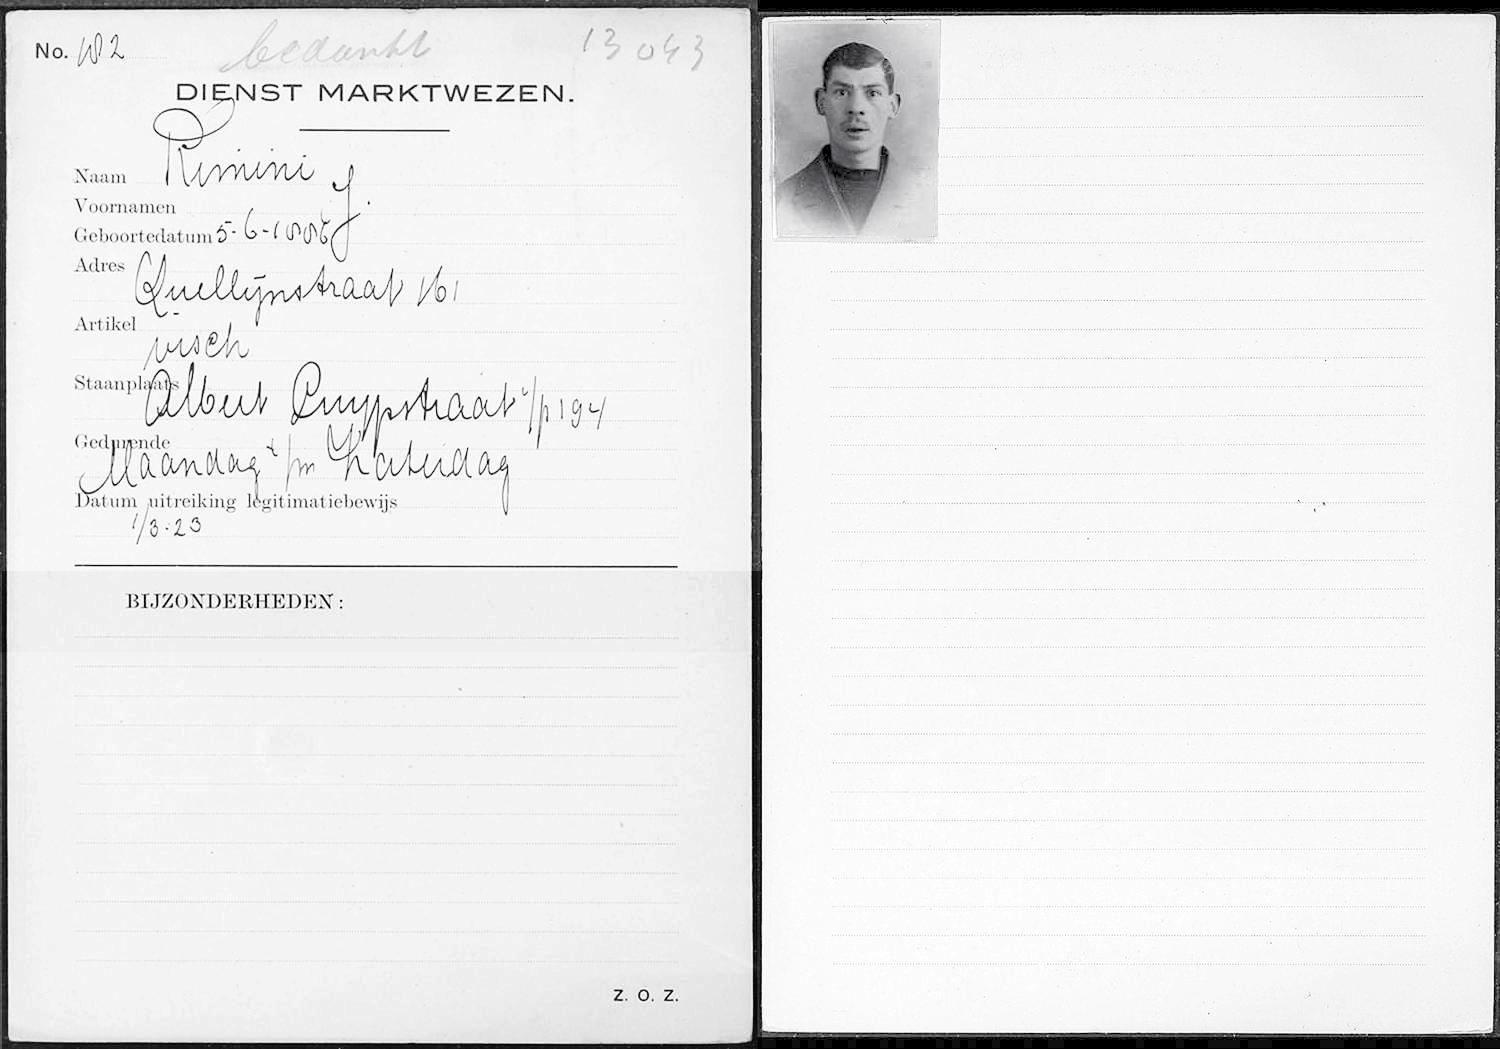 No. 182 bedankt 13043
DIENST MARKTWEZEN.
Naam Rimini
Voornamen J.
Geboortedatum 5-6-1886
Adres Quellijnstraat 161
Artikel visch
Staanplaats Albert Cuypstraat t/p 194
Gedurende Maandag t/m Zaterdag
Datum uitreiking legitimatiebewijs
1/3-23
BIJZONDERHEDEN:
Z. O. Z.